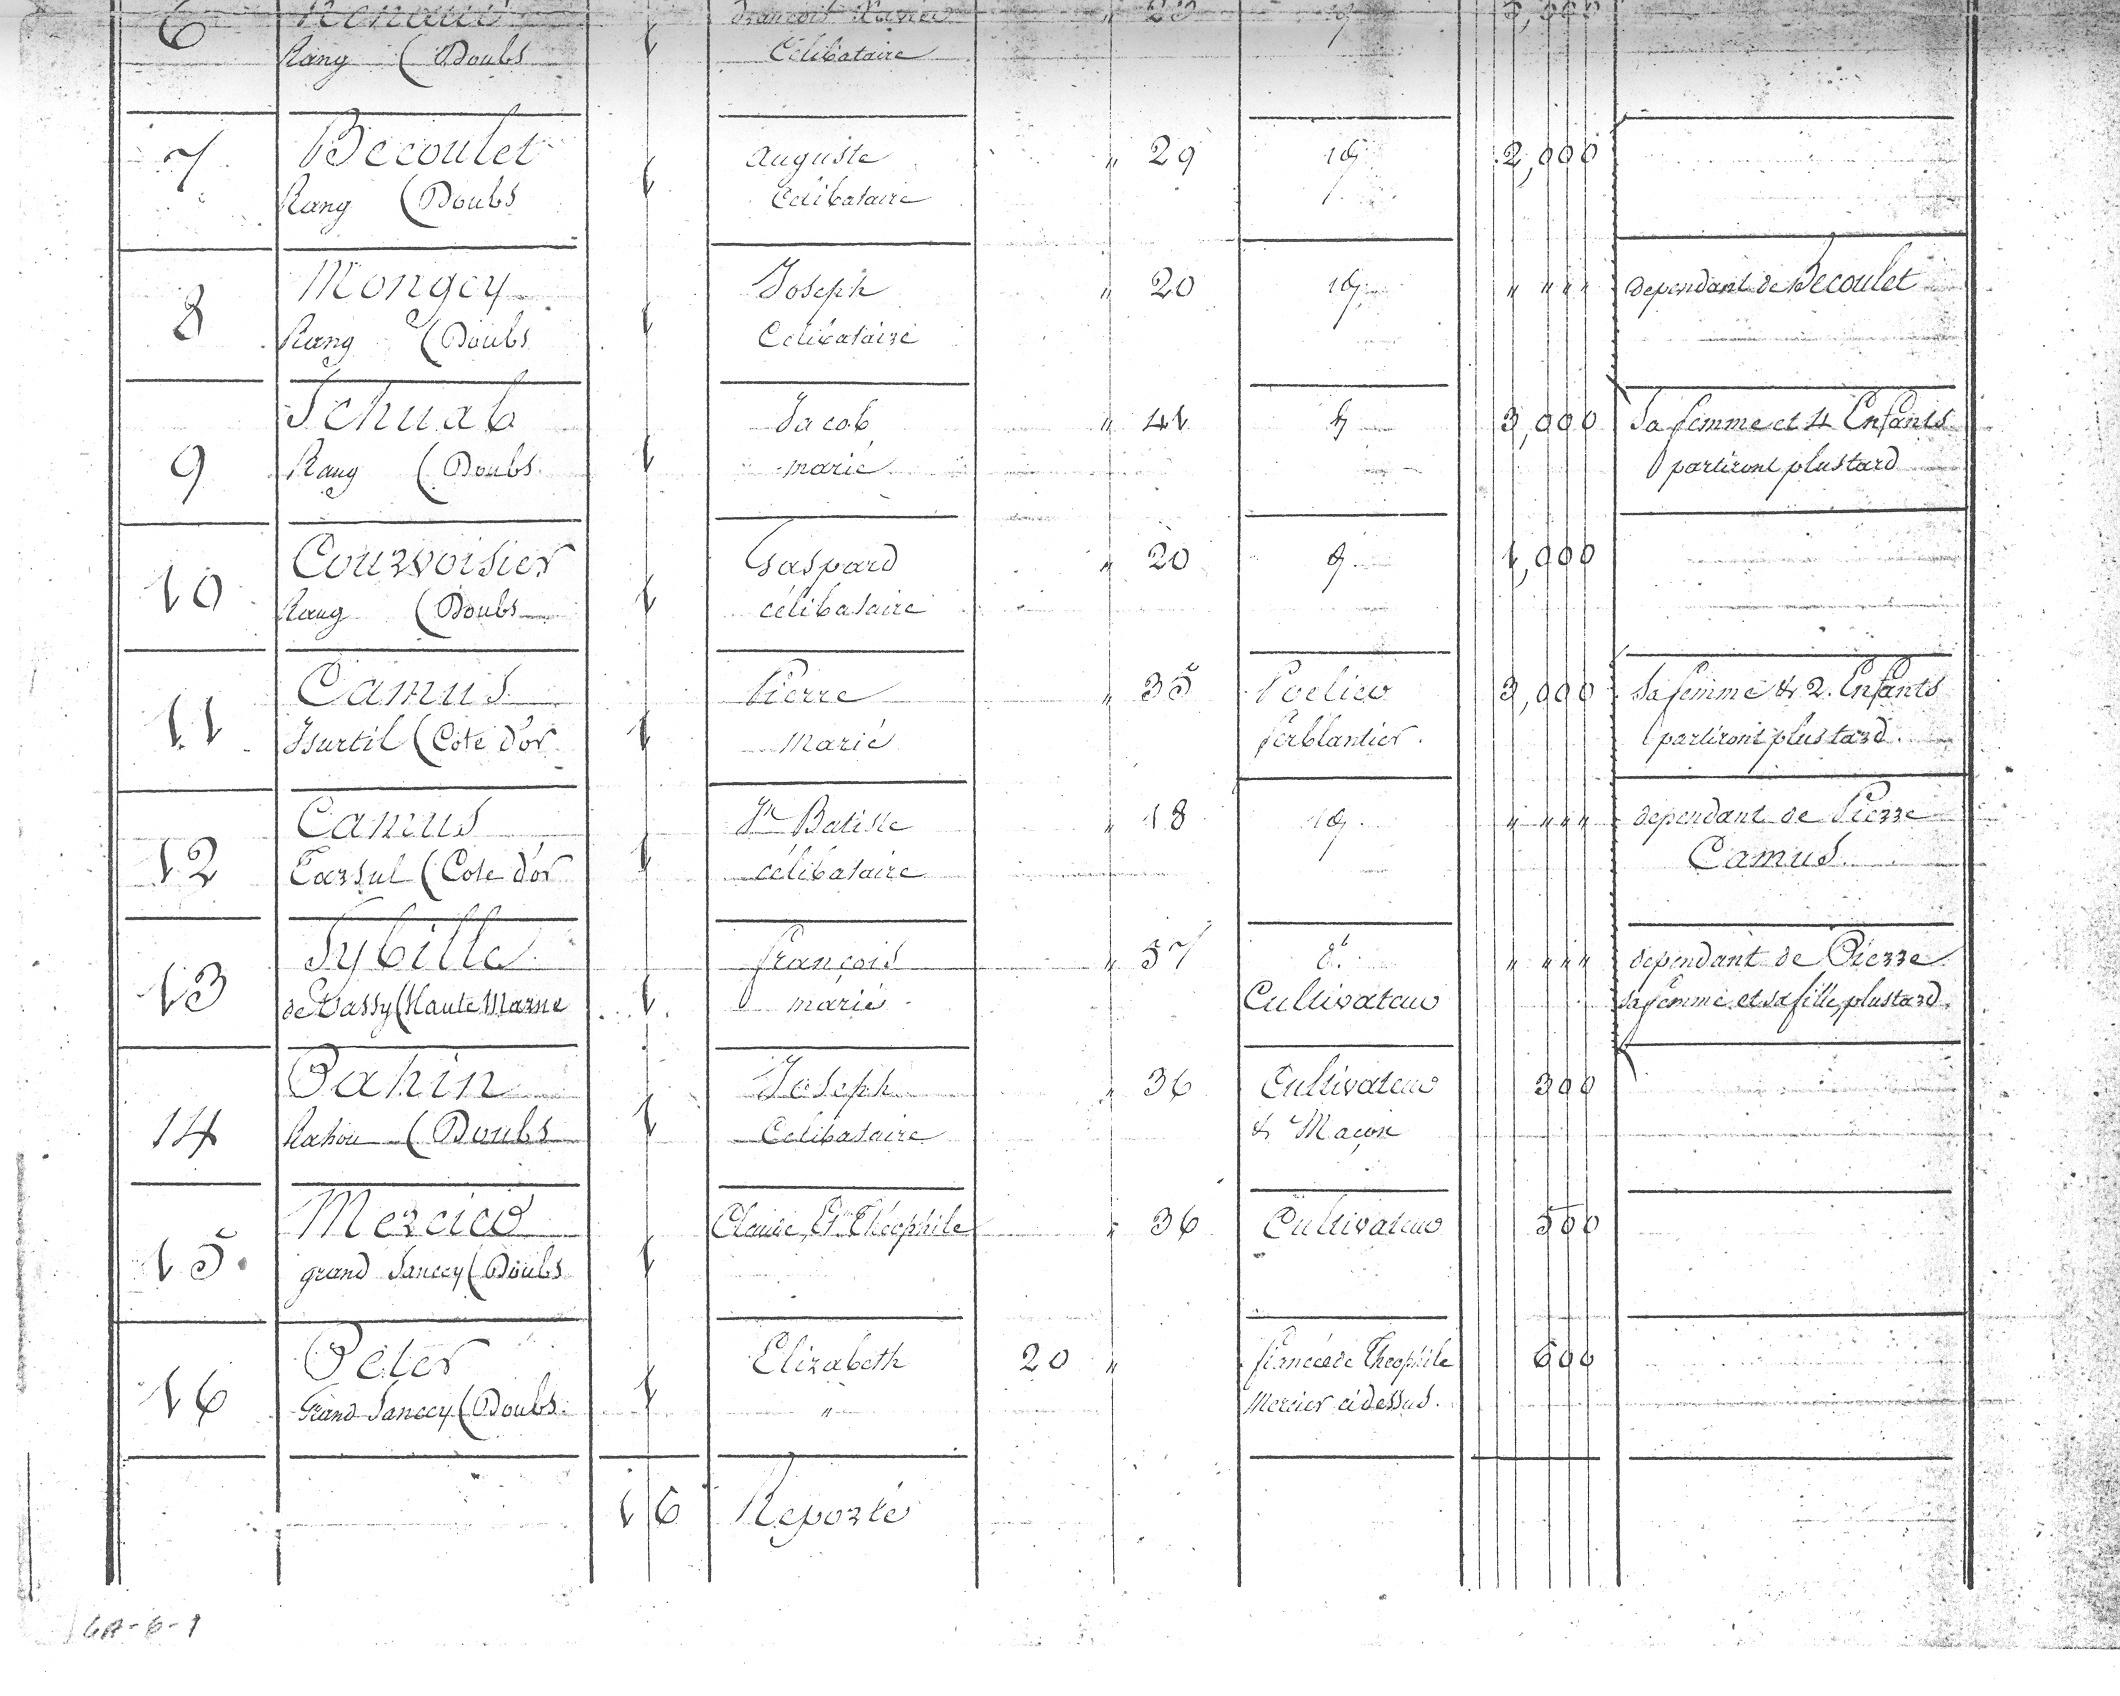 6 Renaud François Xavier " 25 id 3,000
Rang (Doubs 1 Célibataire
7 Becoulet 1 Auguste " 29 id 2,000
Rang (Doubs Célibataire
8 Mongey 1 Joseph " 20 id " " " " dependant de Becoulet
Rang (Doubs Célibataire
9 Schuab 1 Jacob " 41 3,000 Sa femme et 4 Enfants
Rang (Doubs marié partiront plus tard
10 Courvoisier 1 Gaspard " 20 1,000
Rang (Doubs célibataire
11 Camus 1 Pierre " 35 Poelier 3,000 Sa femme & 2. Enfants
Isurtil (Cote d'or Marié ferblantier. partiront plus tard.
12 Camus 1 Jn Batiste " 18 id. " " " " dependant de Pierre
Tarsul (Cote d'or célibataire Camus.
13 Sybille 1 françois " 37 dt. " " " " dependant de Pierre
de Vassy (Haute Marne marié Cultivateur sa femme et sa fille, plus tard.
14 Pahin 1 Joseph " 36 Cultivateur 300
Rahon (Doubs Célibataire & Maçon
15. Mercier 1 Claude, Et. Théophile " 36 Cultivateur 500
grand Sancey (Doubs
16 Peter 1 Elizabeth 20 " fiancée de Theophile 600
Grand Sancey (Doubs. " Mercier ci dessus.
16 Reporté
6A-6-1